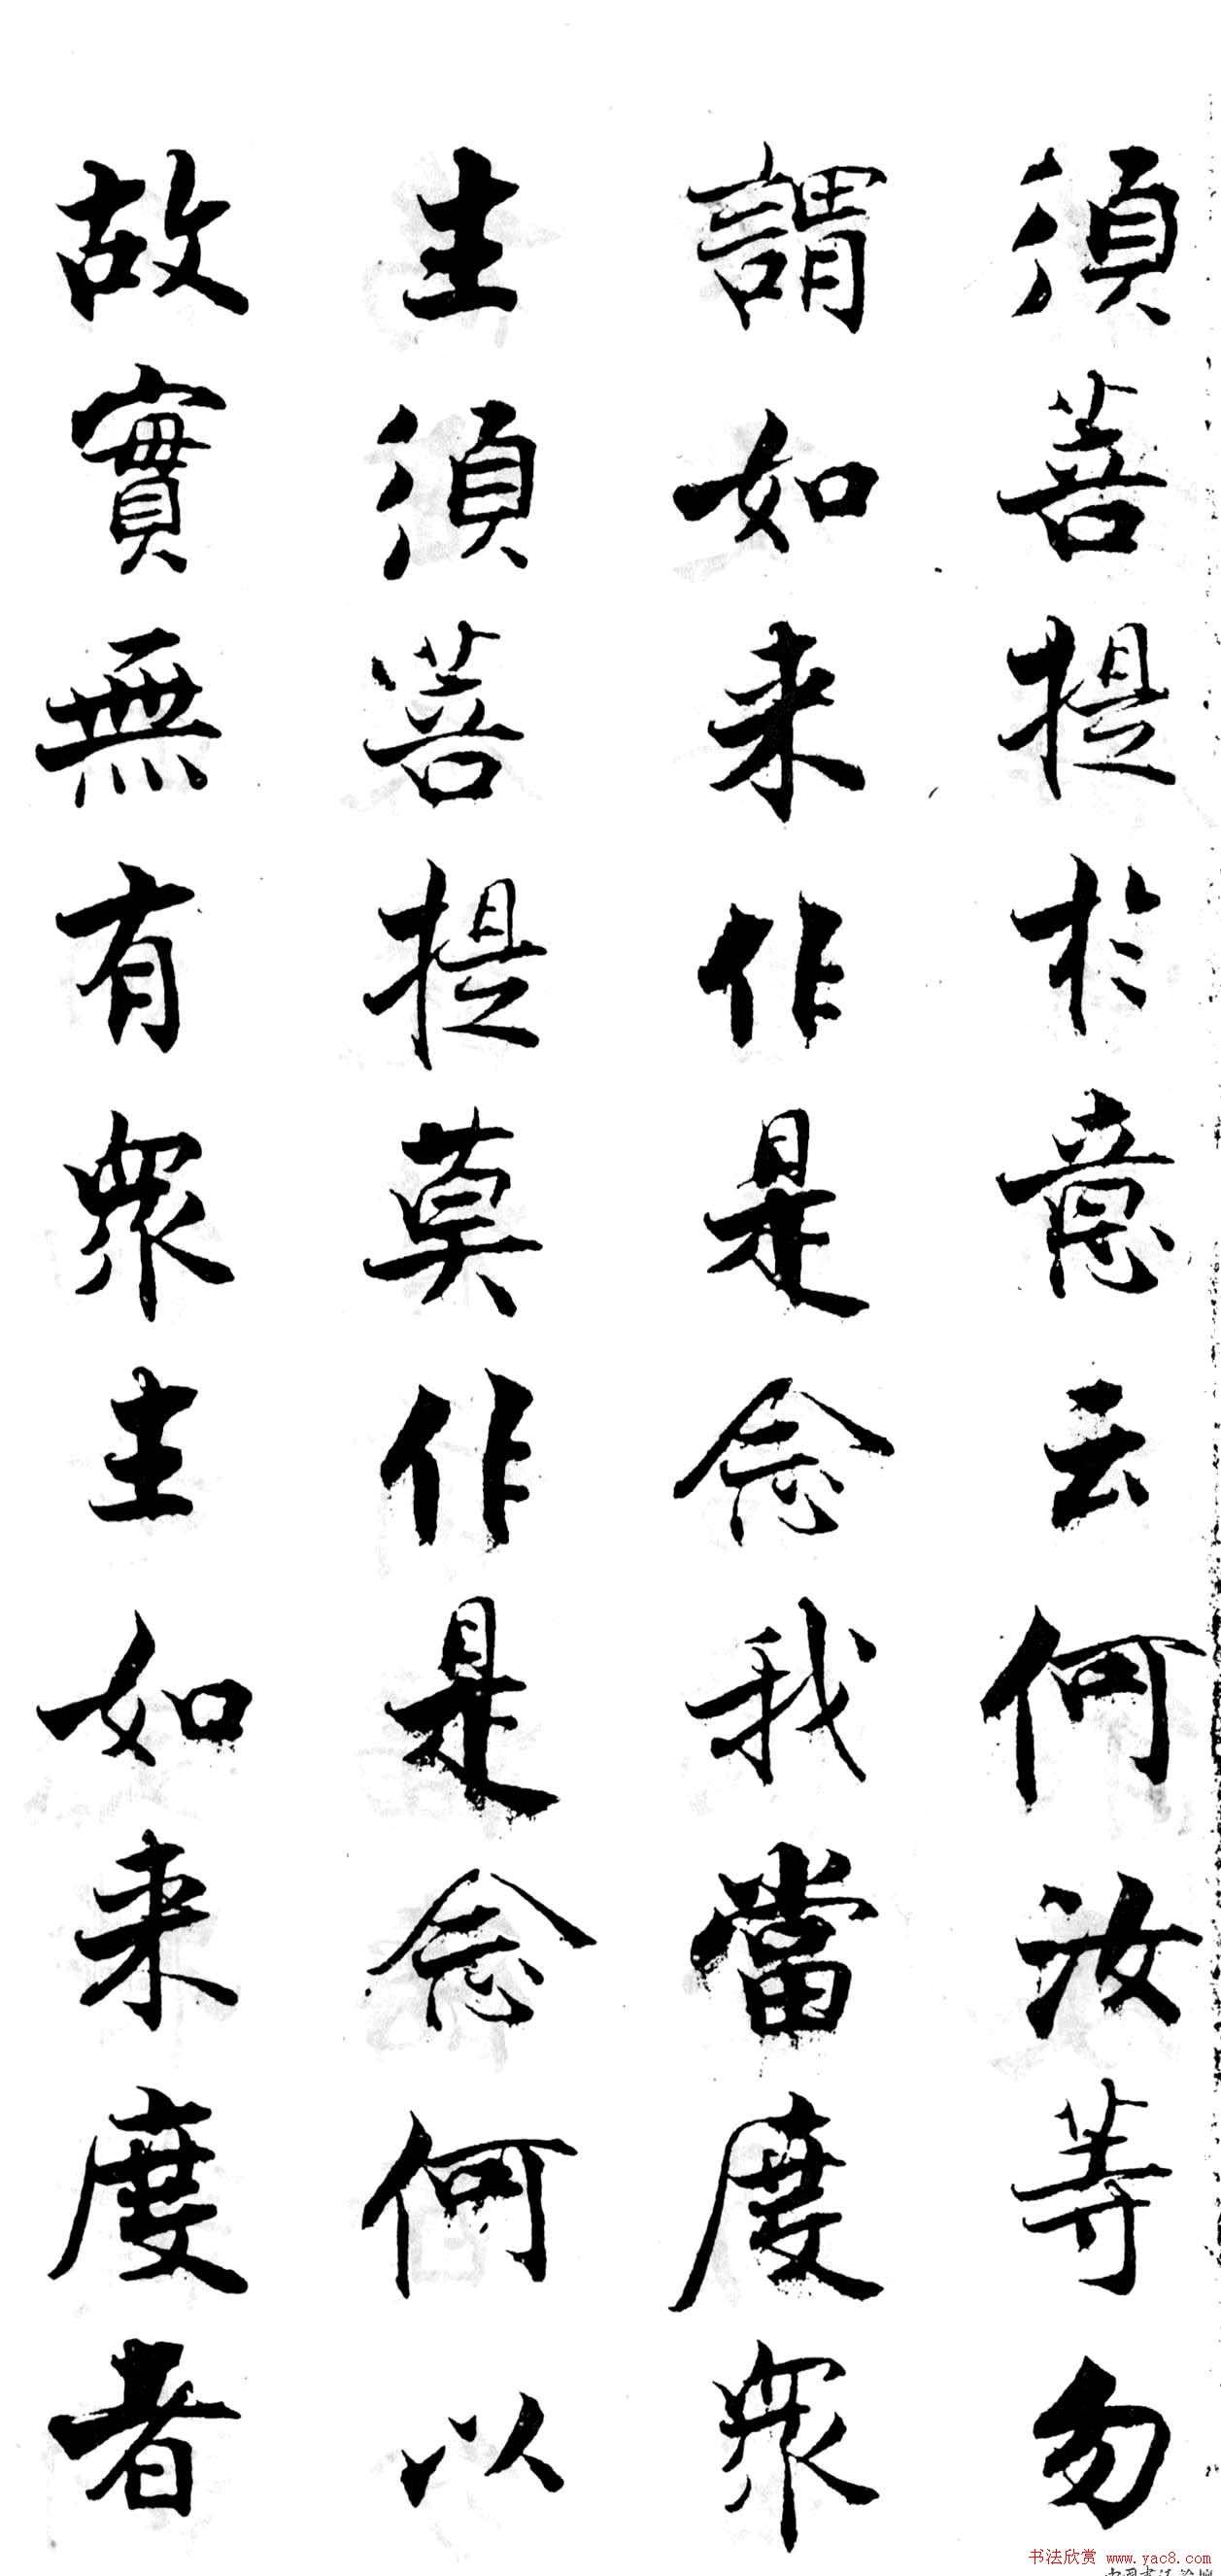 須菩提於意云何汝等勿
謂如来作是念我當度衆
生須菩提莫作是念何以
故實無有衆生如来度者
书法欣赏 www.yac8.com